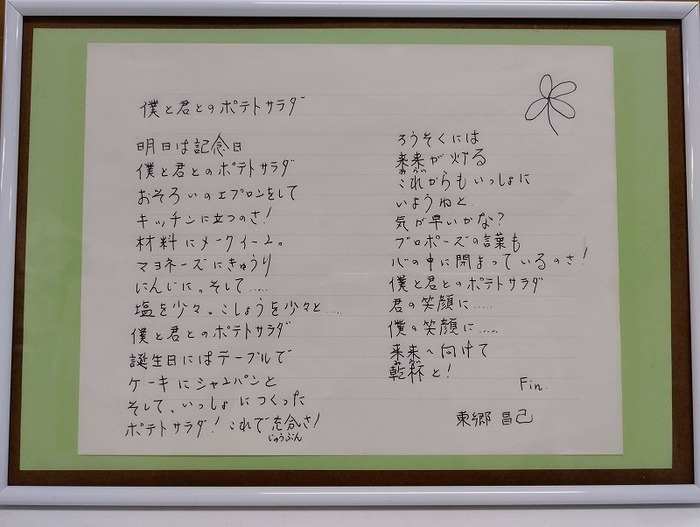 僕と君とのポテトサラダ
明日は記念日
僕と君とのポテトサラダ
おそろいのエプロンをして
キッチンに立つのさ!
材料にメークイーン。
マヨネーズにきゅうり
にんじに。そして.....
塩を少々。こしょうを少々と.....
僕と君とのポテトサラダ
誕生日にはテーブルで
ケーキにシャンパンと
そして、いっしょにつくった
ポテトサラダ!これで充分さ!
じゅうぶん
ろうそくには
未来が灯る
これからもいっしょに
いようねと
気が早いかな?
プロポーズの言葉も
心の中に閉まっているのさ!
僕と君とのポテトサラダ
君の笑顔に.....
僕の笑顔に.....
未来へ向けて
乾杯と!
Fin.
東郷昌己